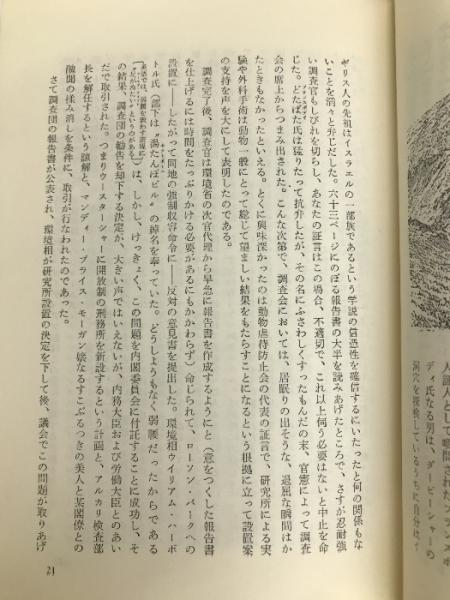 ギリス人の先祖はイスラエルの一部族であるという学説の信憑性を確信するにいたったと何の関係もな
いことを滔々と弁じだした。六十三ページにのぼる報告書の大半を読みあげたところで、さすが忍耐強
い調査官もしびれを切らし、あなたの証言はこの場合、不適切で、これ以上伺う必要はないと中止を命
じた。どたばた氏は猛りたって抗弁したが、その名にふさわしくすったもんだの末、官憲によって調査
会の席上からつまみ出された。こんな次第で、調査会においては、居眠りの出そうな、退屈な瞬間はか
たときもなかったといえる。とくに興味深かったのは動物虐待防止会の代表の証言で、研究所による実
験や外科手術は動物一般にとって総じて望ましい結果をもたらすことになるという根拠に立って設置案
の支持を声を大にして表明したのである。
調査完了後、調査官は環境省の次官代理から早急に報告書を作成するようにと（意をつくした報告書
を仕上げるには時間をたっぷりかける必要があるにもかかわらず）命じられて、ローソン・パークへの
設置に――したがって同地の強制収容命令に――反対の意見書を提出した。環境相ウイリアム・ハーボ
トル氏（部下は〝湯たんぽビル〟の綽名を奉っていた。どうしようもなく弱腰だったからである
）は、しかし、けっきょく、この問題を内閣委員会に付託することに成功し、そ
の結果、調査団の勧告を却下する決定が、大きい声ではいえないが、内務大臣および労働大臣とのあい
だで取引された。つまりウースターシャーに開放制の刑務所を新設するという計画と、アルカリ検査部
長を解任するという諒解と、マンディー・プライス・モーガン嬢なるすこぶるつきの美人と某閣僚との
醜聞の揉み消しを条件に、取引が行なわれたのであった。
さて調査団の報告書が公表され、環境相が研究所設置の決定を下して後、議会でこの問題が取りあげ
21
ディ氏なる男は、ダービーシャーの
洞穴を探検しているうちに自分はイ